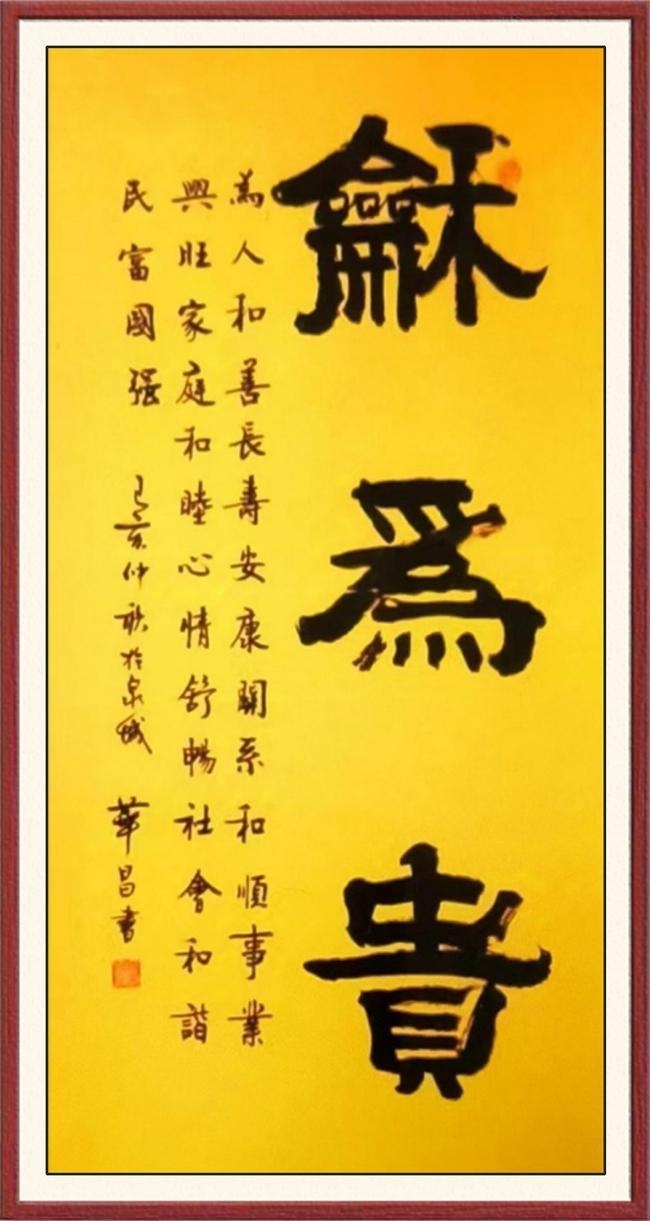 龢為貴
為人和善長壽安康關系和順事業
興旺家庭和睦心情舒暢社會和諧
民富國强 己亥仲秋於泉城 華昌書